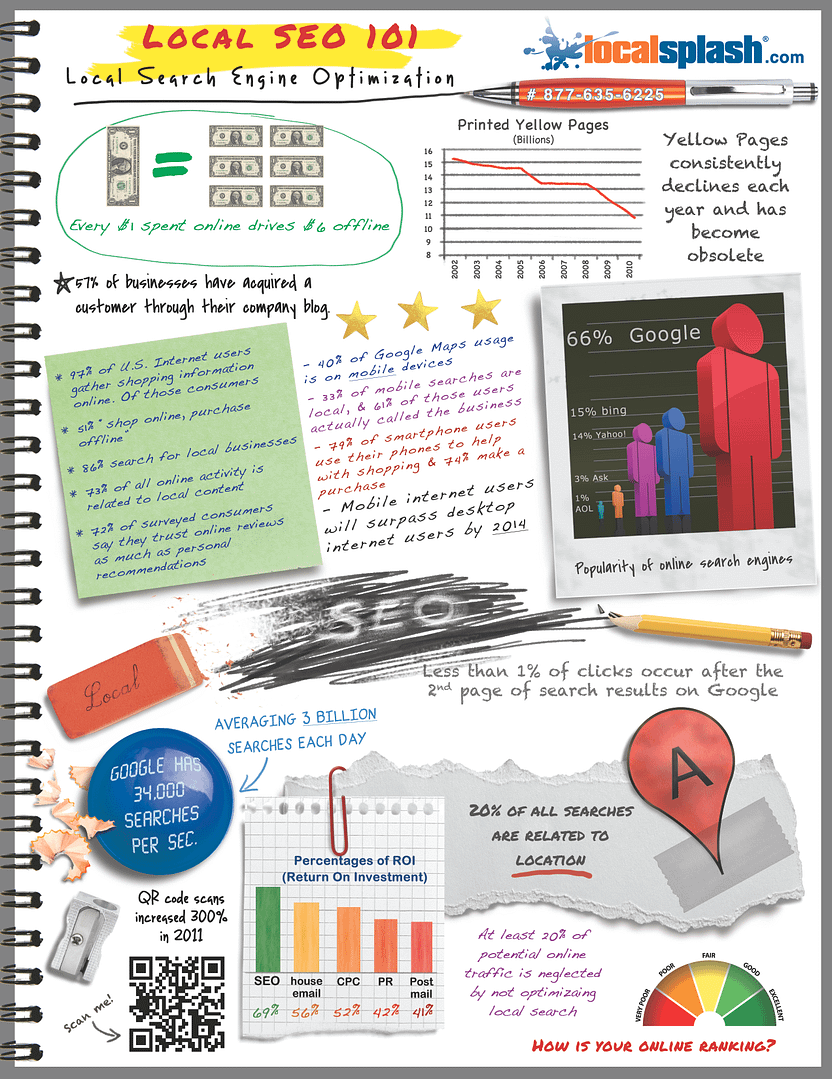 LOCAL SEO 101
Local Search Engine Optimization
localsplash®.com
# 877-635-6225
=
Every $1 spent online drives $6 offline
Printed Yellow Pages
(Billions)
16
15
14
13
12
11
10
9
8
2002
2003
2004
2005
2006
2007
2008
2009
2010
Yellow Pages
consistently
declines each
year and has
become
obsolete
57% of businesses have acquired a
customer through their company blog.
* 97% of U.S. Internet users
gather shopping information
online. Of those consumers
* 51% "shop online, purchase
offline"
* 86% search for local businesses
* 73% of all online activity is
related to local content
* 72% of surveyed consumers
say they trust online reviews
as much as personal
recommendations
- 40% of Google Maps usage
is on mobile devices
- 33% of mobile searches are
local, & 61% of those users
actually called the business
- 79% of smartphone users
use their phones to help
with shopping & 74% make a
purchase
- Mobile internet users
will surpass desktop
internet users by 2014
66% Google
15% bing
14% Yahoo!
3% Ask
1%
AOL
Popularity of online search engines
SEO
Local
Less than 1% of clicks occur after the
2nd page of search results on Google
AVERAGING 3 BILLION
SEARCHES EACH DAY
GOOGLE HAS
34,000
SEARCHES
PER SEC.
QR code scans
increased 300%
in 2011
scan me!
Percentages of ROI
(Return On Investment)
SEO
house
email
CPC
PR
Post
mail
69%
56%
52%
42%
41%
20% OF ALL SEARCHES
ARE RELATED TO
LOCATION
A
At least 20% of
potential online
traffic is neglected
by not optimizaing
local search
VERY POOR
POOR
FAIR
GOOD
EXCELLENT
HOW IS YOUR ONLINE RANKING?